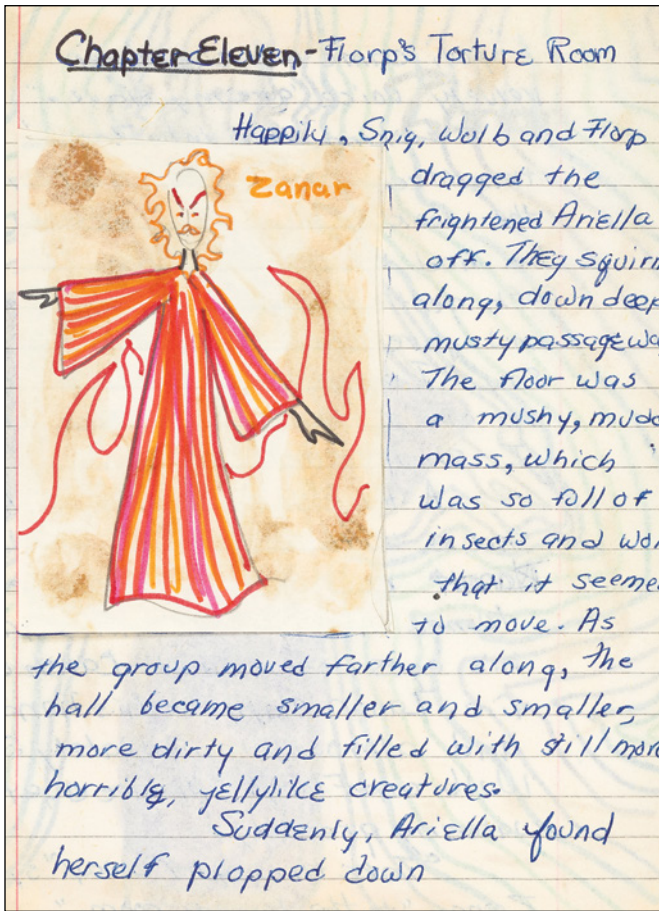 Chapter Eleven - Florp's Torture Room
Happily, Snig, Wulb and Florp
Zanar
dragged the
frightened Ariella
off. They squirm
along, down deep
musty passagewa
The floor was
a mushy, mudd
mass, which
was so full of
insects and wor
that it seemed
to move. As
the group moved farther along, the
hall became smaller and smaller,
more dirty and filled with still more
horrible, jellylike creatures.
Suddenly, Ariella found
herself plopped down